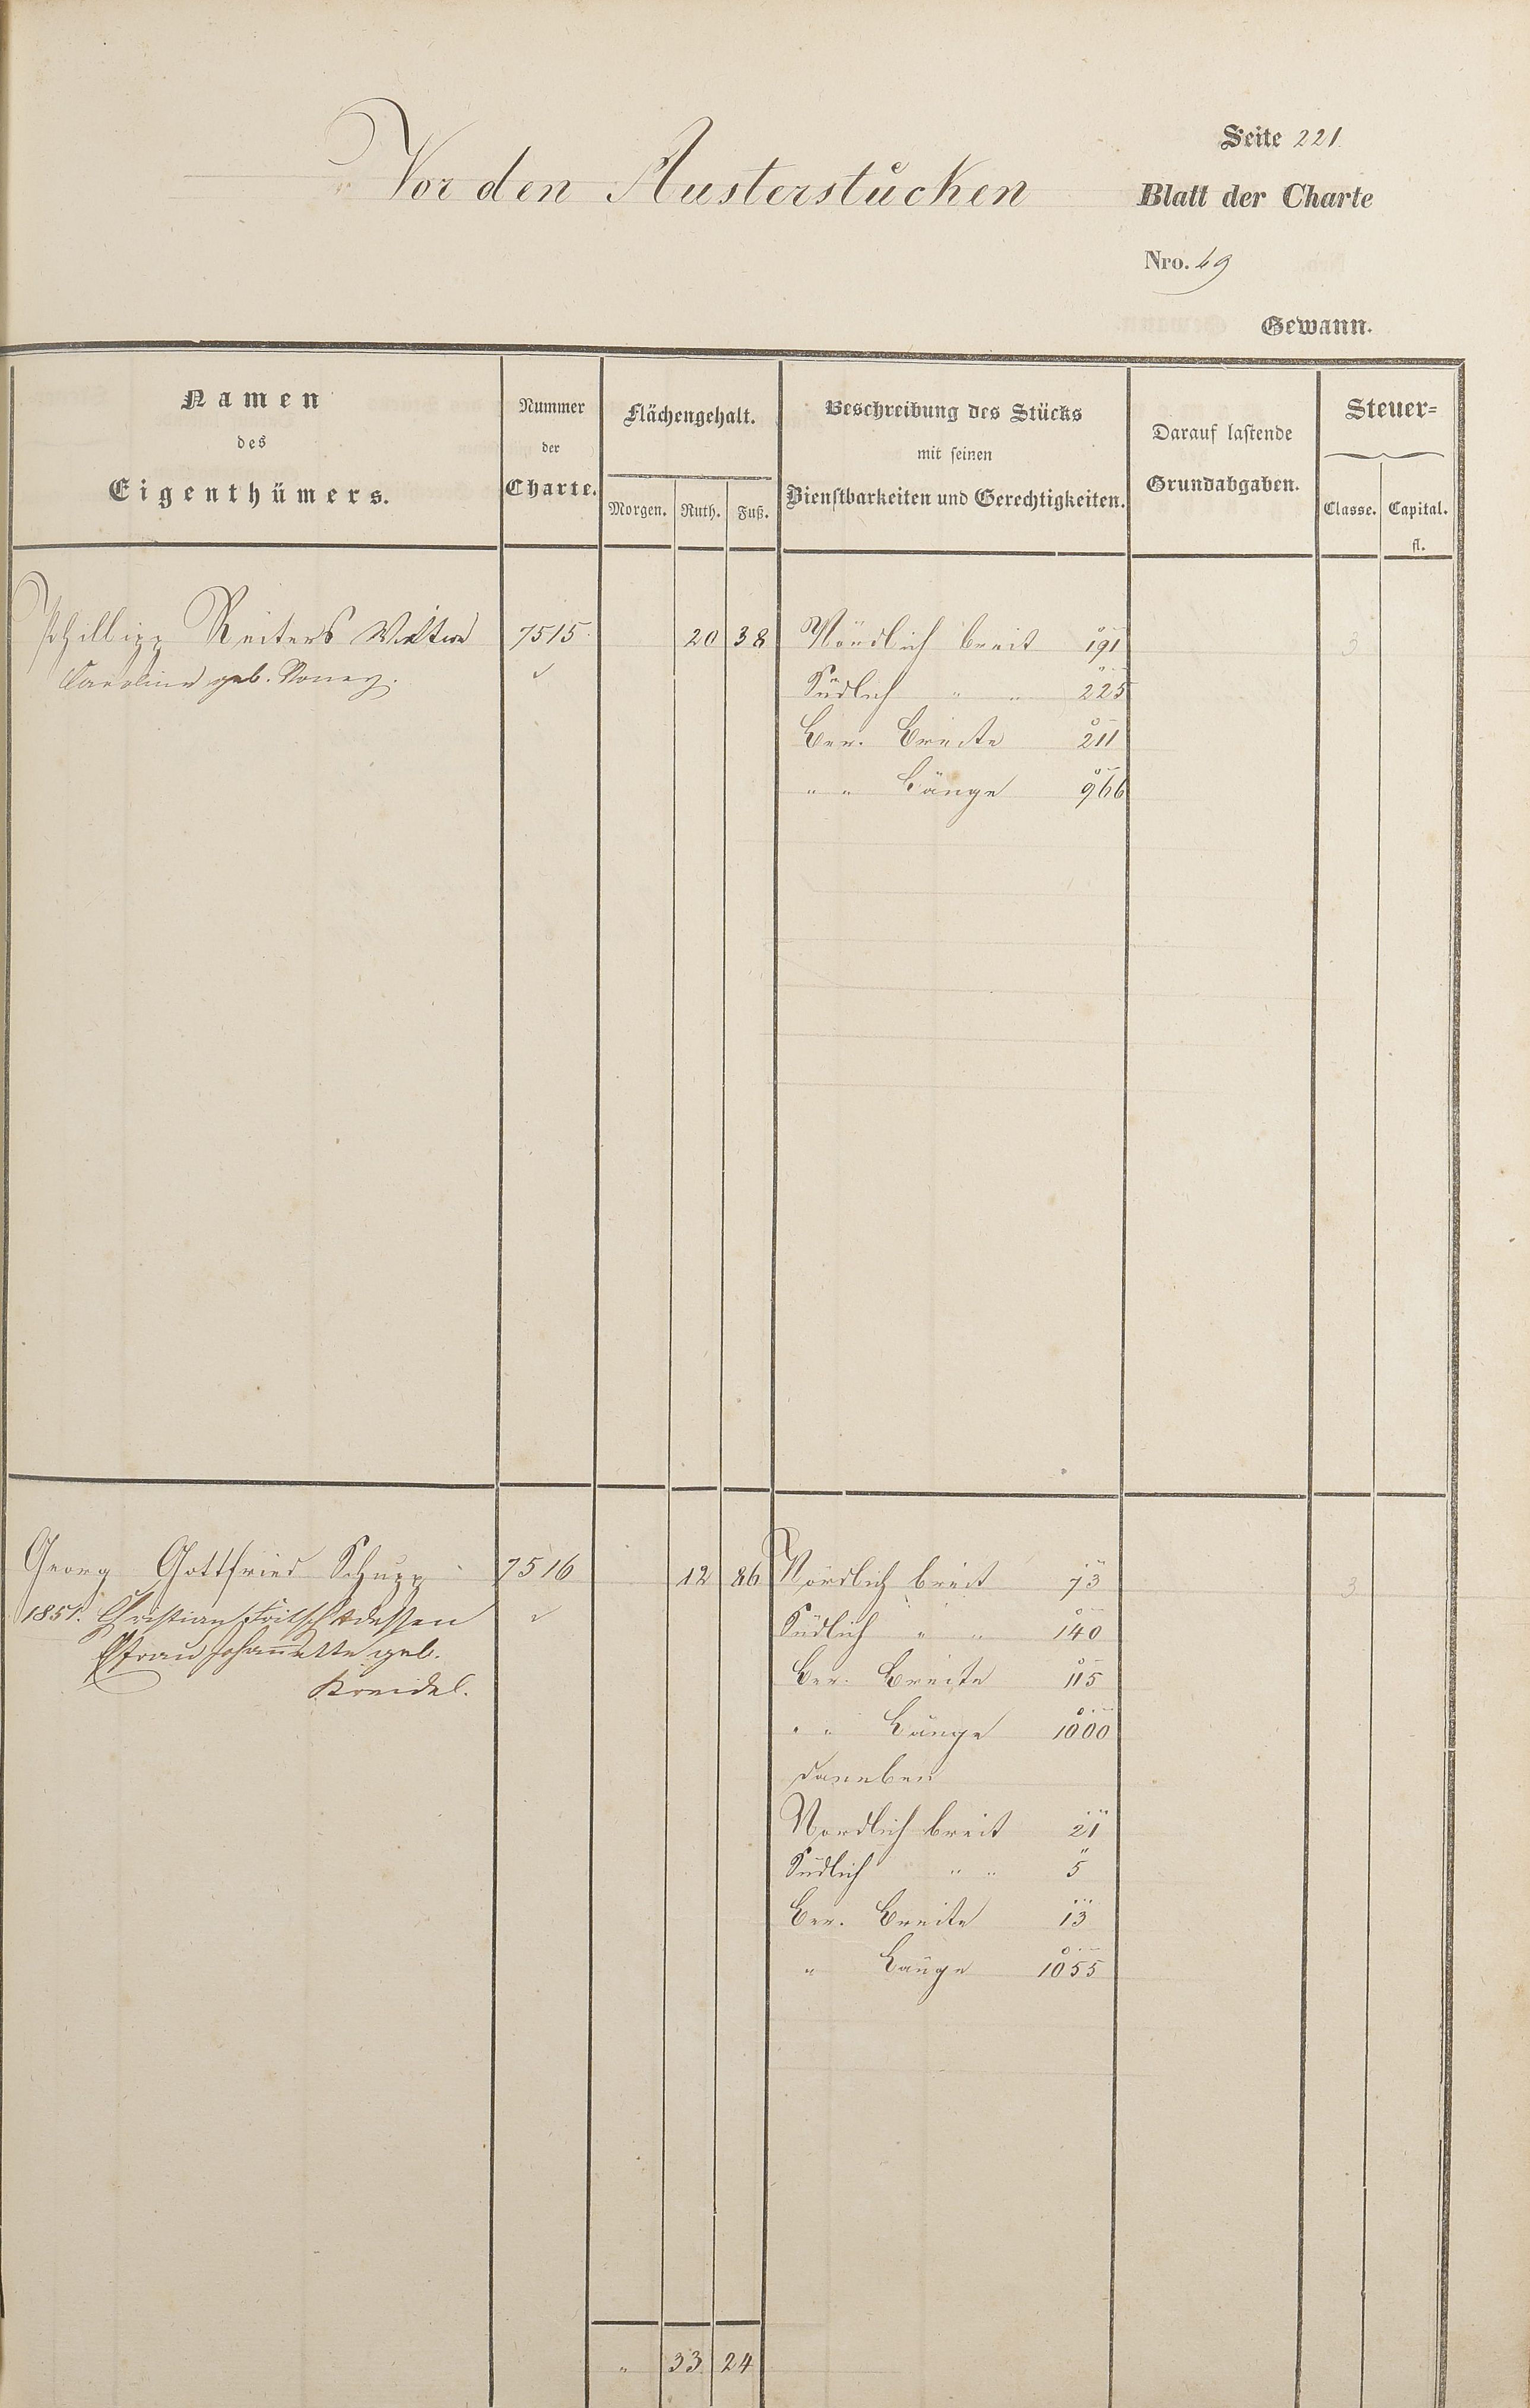 Seite 221
Vor den Austerstücken
Blatt der Charte
Nro. 49
Gewann.
Namen
des
Eigenthümers.
Nummer
der
Charte.
Flächengehalt.
Morgen. Ruth. Fuß.
Beschreibung des Stücks
mit seinen
Dienstbarkeiten und Gerechtigkeiten.
Darauf lastende
Grundabgaben.
Steuer-
Classe. Capital.
fl.
Philipp Reiters Wittwe 7515 20 38 Nördlich breit 191 3
Caroline geb.
Südlich " " 225
Ber. Breite 211
" " Länge 966
Georg Gottfried Schupp 7516 12 86 Nördlich breit 73 3
1851. Christian Fritsch & dessen
Südlich " " 140
Efrau Johannette geb.
Ber. Breite 115
Kreidel.
" " Länge 1000
daneben
Nördlich breit 21
Südlich " " 5
Ber. Breite 13
" Länge 1055
" 33 24